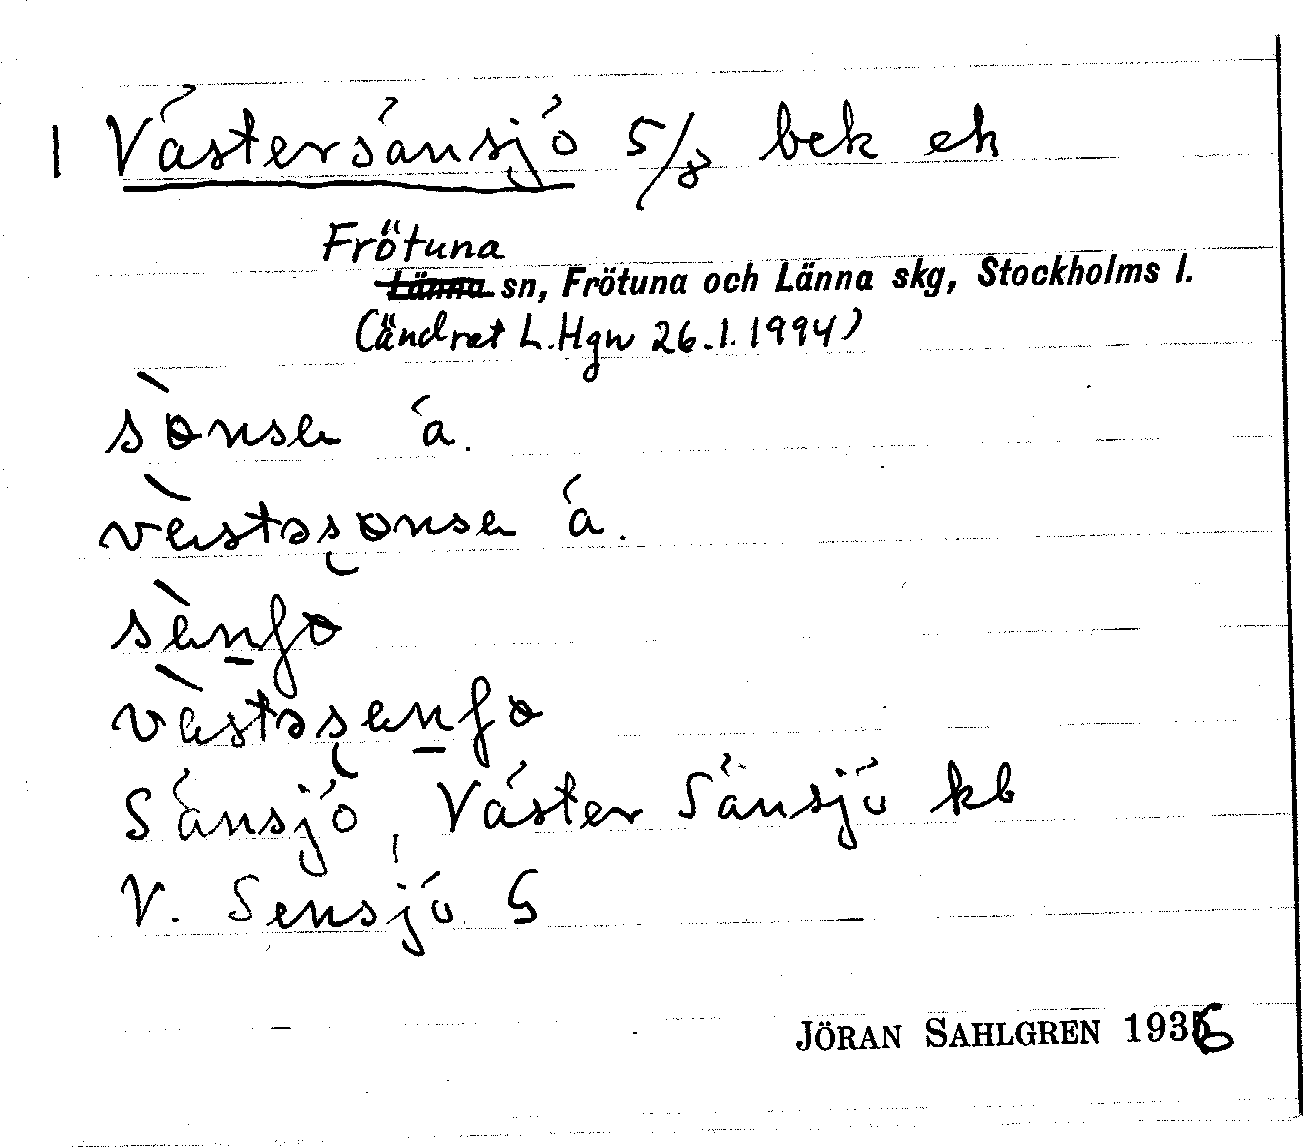 1 Västersänsjö 5/8 bek ek
Frötuna
Länna sn, Frötuna och Länna skg, Stockholms l.
(ändrat L.Hgn 26.1.1994)
sònsa ä.
v̀ästəsonsa ä.
sènʃo
vàstəsenʃo
Sänsjö, Väster Sänsjö kb
V. Sensjö G
JÖRAN SAHLGREN 1936